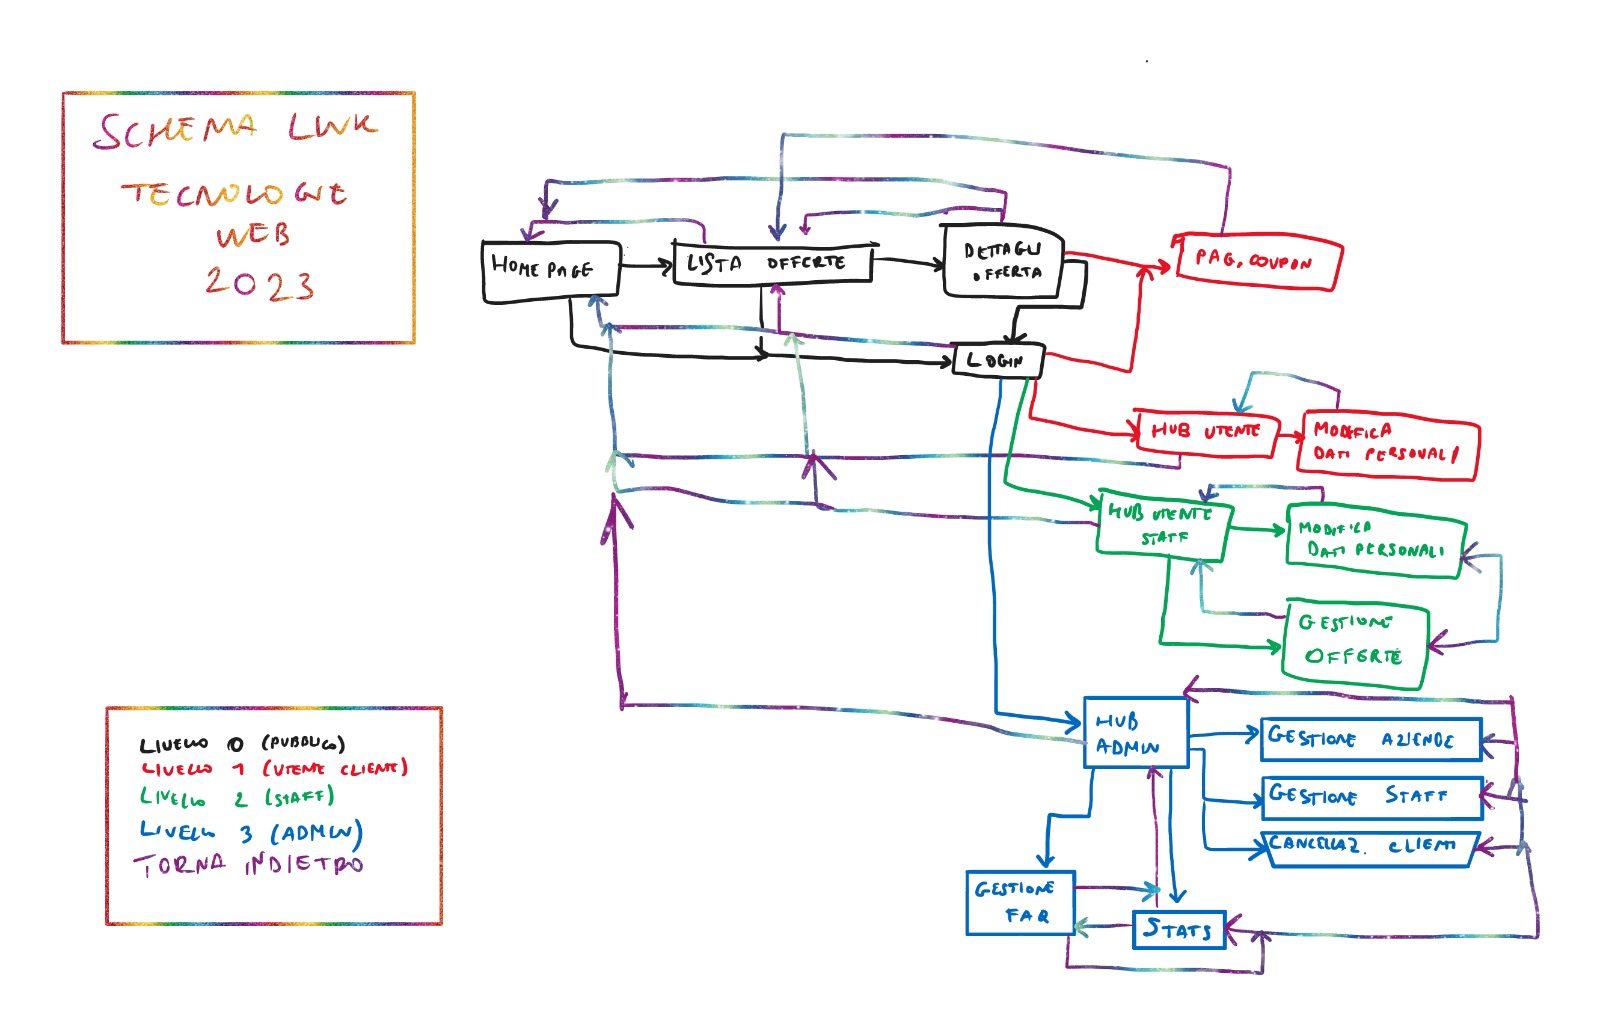 SCHEMA LINK
TECNOLOGIE
WEB
2023
HOME PAGE
LISTA OFFERTE
DETTAGLI
OFFERTA
PAG. COUPON
LOGIN
HUB UTENTE
MODIFICA
DATI PERSONALI
HUB UTENTE
STAFF
MODIFICA
DATI PERSONALI
GESTIONE
OFFERTE
HUB
ADMIN
GESTIONE AZIENDE
GESTIONE STAFF
CANCELLAZ. CLIENTI
GESTIONE
FAQ
STATS
LIVELLO 0 (PUBBLICO)
LIVELLO 1 (UTENTE CLIENTE)
LIVELLO 2 (STAFF)
LIVELLO 3 (ADMIN)
TORNA INDIETRO